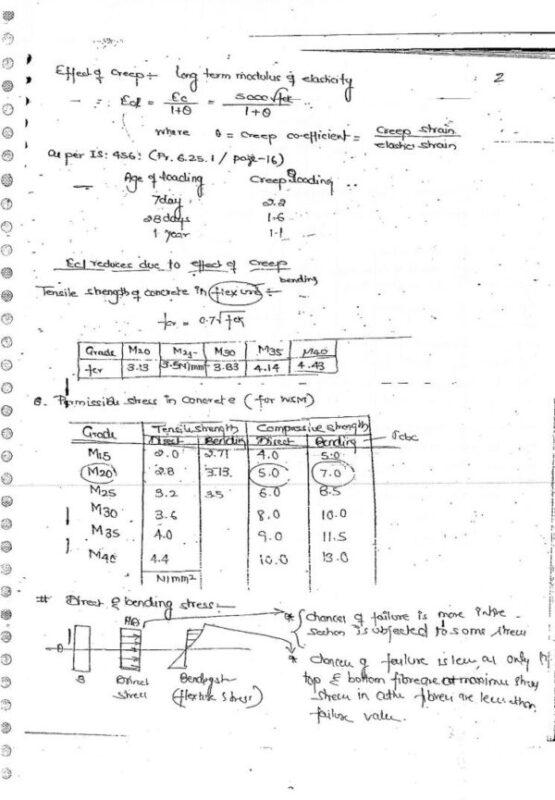 2
Effect of Creep :- long term modulus of elasticity
∴ Ecl = Ec / 1+θ = 5000√fck / 1+θ
where θ = Creep co-efficient = Creep strain / elastic strain
as per IS: 456: (Pr. 6.25.1 / page-16)
Age of loading Creep loading
7day 2.2
28 days 1.6
1 year 1.1
Ecl reduces due to effect of Creep
bending
Tensile strength of concrete in flexure :-
fcr = 0.7√fck
Grade M20 M25 M30 M35 M40
fcr 3.13 3.5N/mm² 3.83 4.14 4.43
Permissible stress in concrete (for WSM)
Grade Tensile strength Compressive strength
Direct Bending Direct Bending σcbc
M15 2.0 2.71 4.0 5.0
M20 2.8 3.13 5.0 7.0
M25 3.2 3.5 6.0 8.5
M30 3.6 8.0 10.0
M35 4.0 9.0 11.5
M40 4.4 10.0 13.0
N/mm²
# Direct & bending stress :-
* Chances of failure is more
section is subjected to same stress
B
Direct stress
(flexture stress)
* Chances of failure is less, as only
top & bottom fibre are at maximum stress
stress in other fibres are less than
failure value.